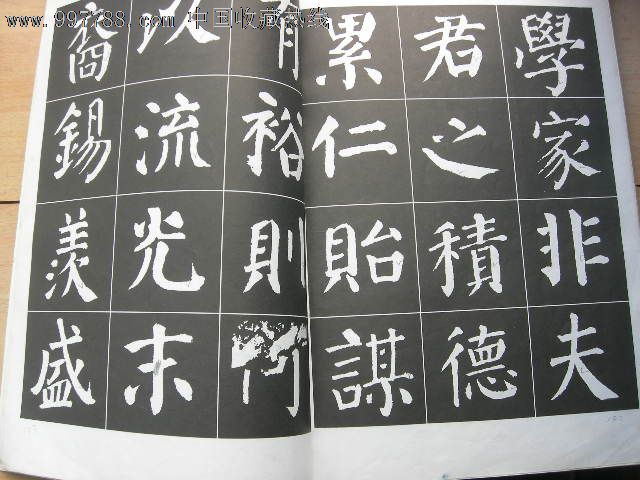 www.997788.com 中国收藏热线
學家非夫
君之積德
累仁貽謀
有裕則何
以流光末
裔錫羨盛